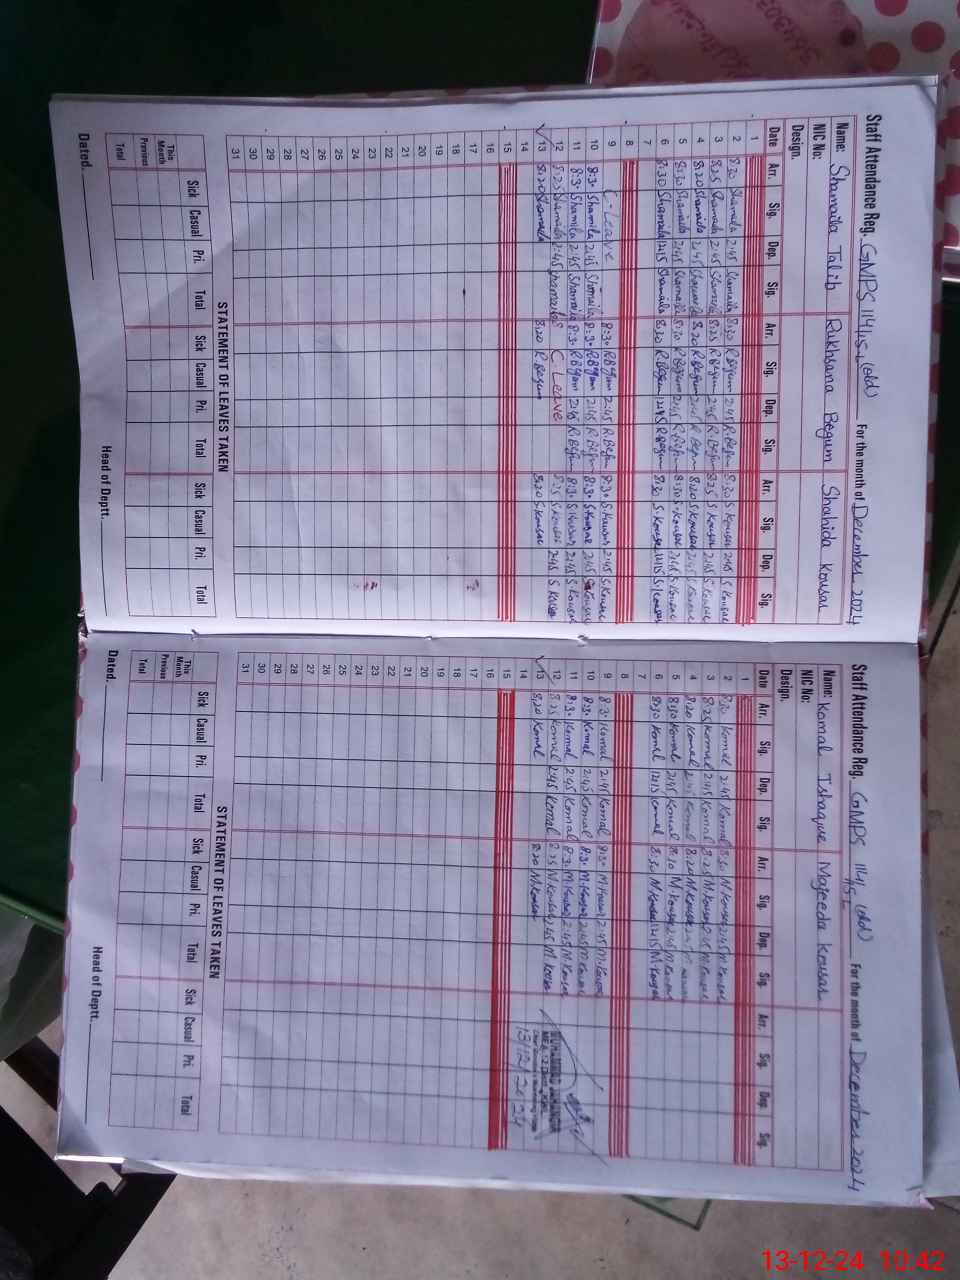 Staff Attendance Reg. GMPS 114/15-L (old) For the month of December 2024
Name: Shamaila Talib Rukhsana Begum Shahida Kousar
NIC No:
Design.
Date Arr. Sig. Dep. Sig. Arr. Sig. Dep. Sig. Arr. Sig. Dep. Sig.
1
2 8:30 Shamaila 2:45 Shamaila 8:30 R.Begum 2:45 R.Begum 8:30 S.Kousar 2:45 S.Kousar
3 8:25 Shamaila 2:45 Shamaila 8:25 R.Begum 2:45 R.Begum 8:25 S.Kousar 2:45 S.Kousar
4 8:20 Shamaila 2:45 Shamaila 8:20 R.Begum 2:45 R.Begum 8:20 S.Kousar 2:45 S.Kousar
5 8:30 Shamaila 2:45 Shamaila 8:30 R.Begum 2:45 R.Begum 8:30 S.Kousar 2:45 S.Kousar
6 8:30 Shamaila 12:15 Shamaila 8:30 R.Begum 12:15 R.Begum 8:30 S.Kousar 12:15 S.Kousar
7
8
9 C-Leave 8:30 R.Begum 2:45 R.Begum 8:30 S.Kousar 2:45 S.Kousar
10 8:30 Shamila 2:45 Shamaila 8:30 R.Begum 2:45 R.Begum 8:30 S.Kousar 2:45 S.Kousar
11 8:30 Shamila 2:45 Shamaila 8:30 R.Begum 2:45 R.Begum 8:30 S.Kousar 2:45 S.Kousar
12 8:25 Shamaila 2:45 Shamaila C Leave 8:25 S.Kousar 2:45 S.Kousar
13 8:20 Shamaila 8:20 R.Begum 8:20 S.Kousar
14
15
16
17
18
19
20
21
22
23
24
25
26
27
28
29
30
31
STATEMENT OF LEAVES TAKEN
Sick Casual Pri. Total Sick Casual Pri. Total Sick Casual Pri. Total
This Month
Previous
Total
Dated. Head of Deptt.
Staff Attendance Reg. GMPS 114/15-L (old) For the month of December 2024
Name: Komal Ishaque Majeeda Kousar
NIC No:
Design.
Date Arr. Sig. Dep. Sig. Arr. Sig. Dep. Sig. Arr. Sig. Dep. Sig.
1
2 8:30 Komal 2:45 Komal 8:30 M.Kousar 2:45 M.Kousar
3 8:25 Komal 2:45 Komal 8:25 M.Kousar 2:45 M.Kousar
4 8:20 Komal 2:45 Komal 8:20 M.Kousar 2:45 M.Kousar
5 8:30 Komal 2:45 Komal 8:30 M.Kousar 2:45 M.Kousar
6 8:30 Komal 12:15 Komal 8:30 M.Kousar 12:15 M.Kousar
7
8
9 8:30 Komal 2:45 Komal 8:30 M.Kousar 2:45 M.Kousar
10 8:30 Komal 2:45 Komal 8:30 M.Kousar 2:45 M.Kousar
11 8:30 Komal 2:45 Komal 8:30 M.Kousar 2:45 M.Kousar
12 8:25 Komal 2:45 Komal 8:25 M.Kousar 2:45 M.Kousar
13 8:20 Komal 8:20 M.Kousar
MUHAMMAD JAHANGIR
13/12/2024
14
15
16
17
18
19
20
21
22
23
24
25
26
27
28
29
30
31
STATEMENT OF LEAVES TAKEN
Sick Casual Pri. Total Sick Casual Pri. Total Sick Casual Pri. Total
This Month
Previous
Total
Dated. Head of Deptt.
13-12-24 10:42